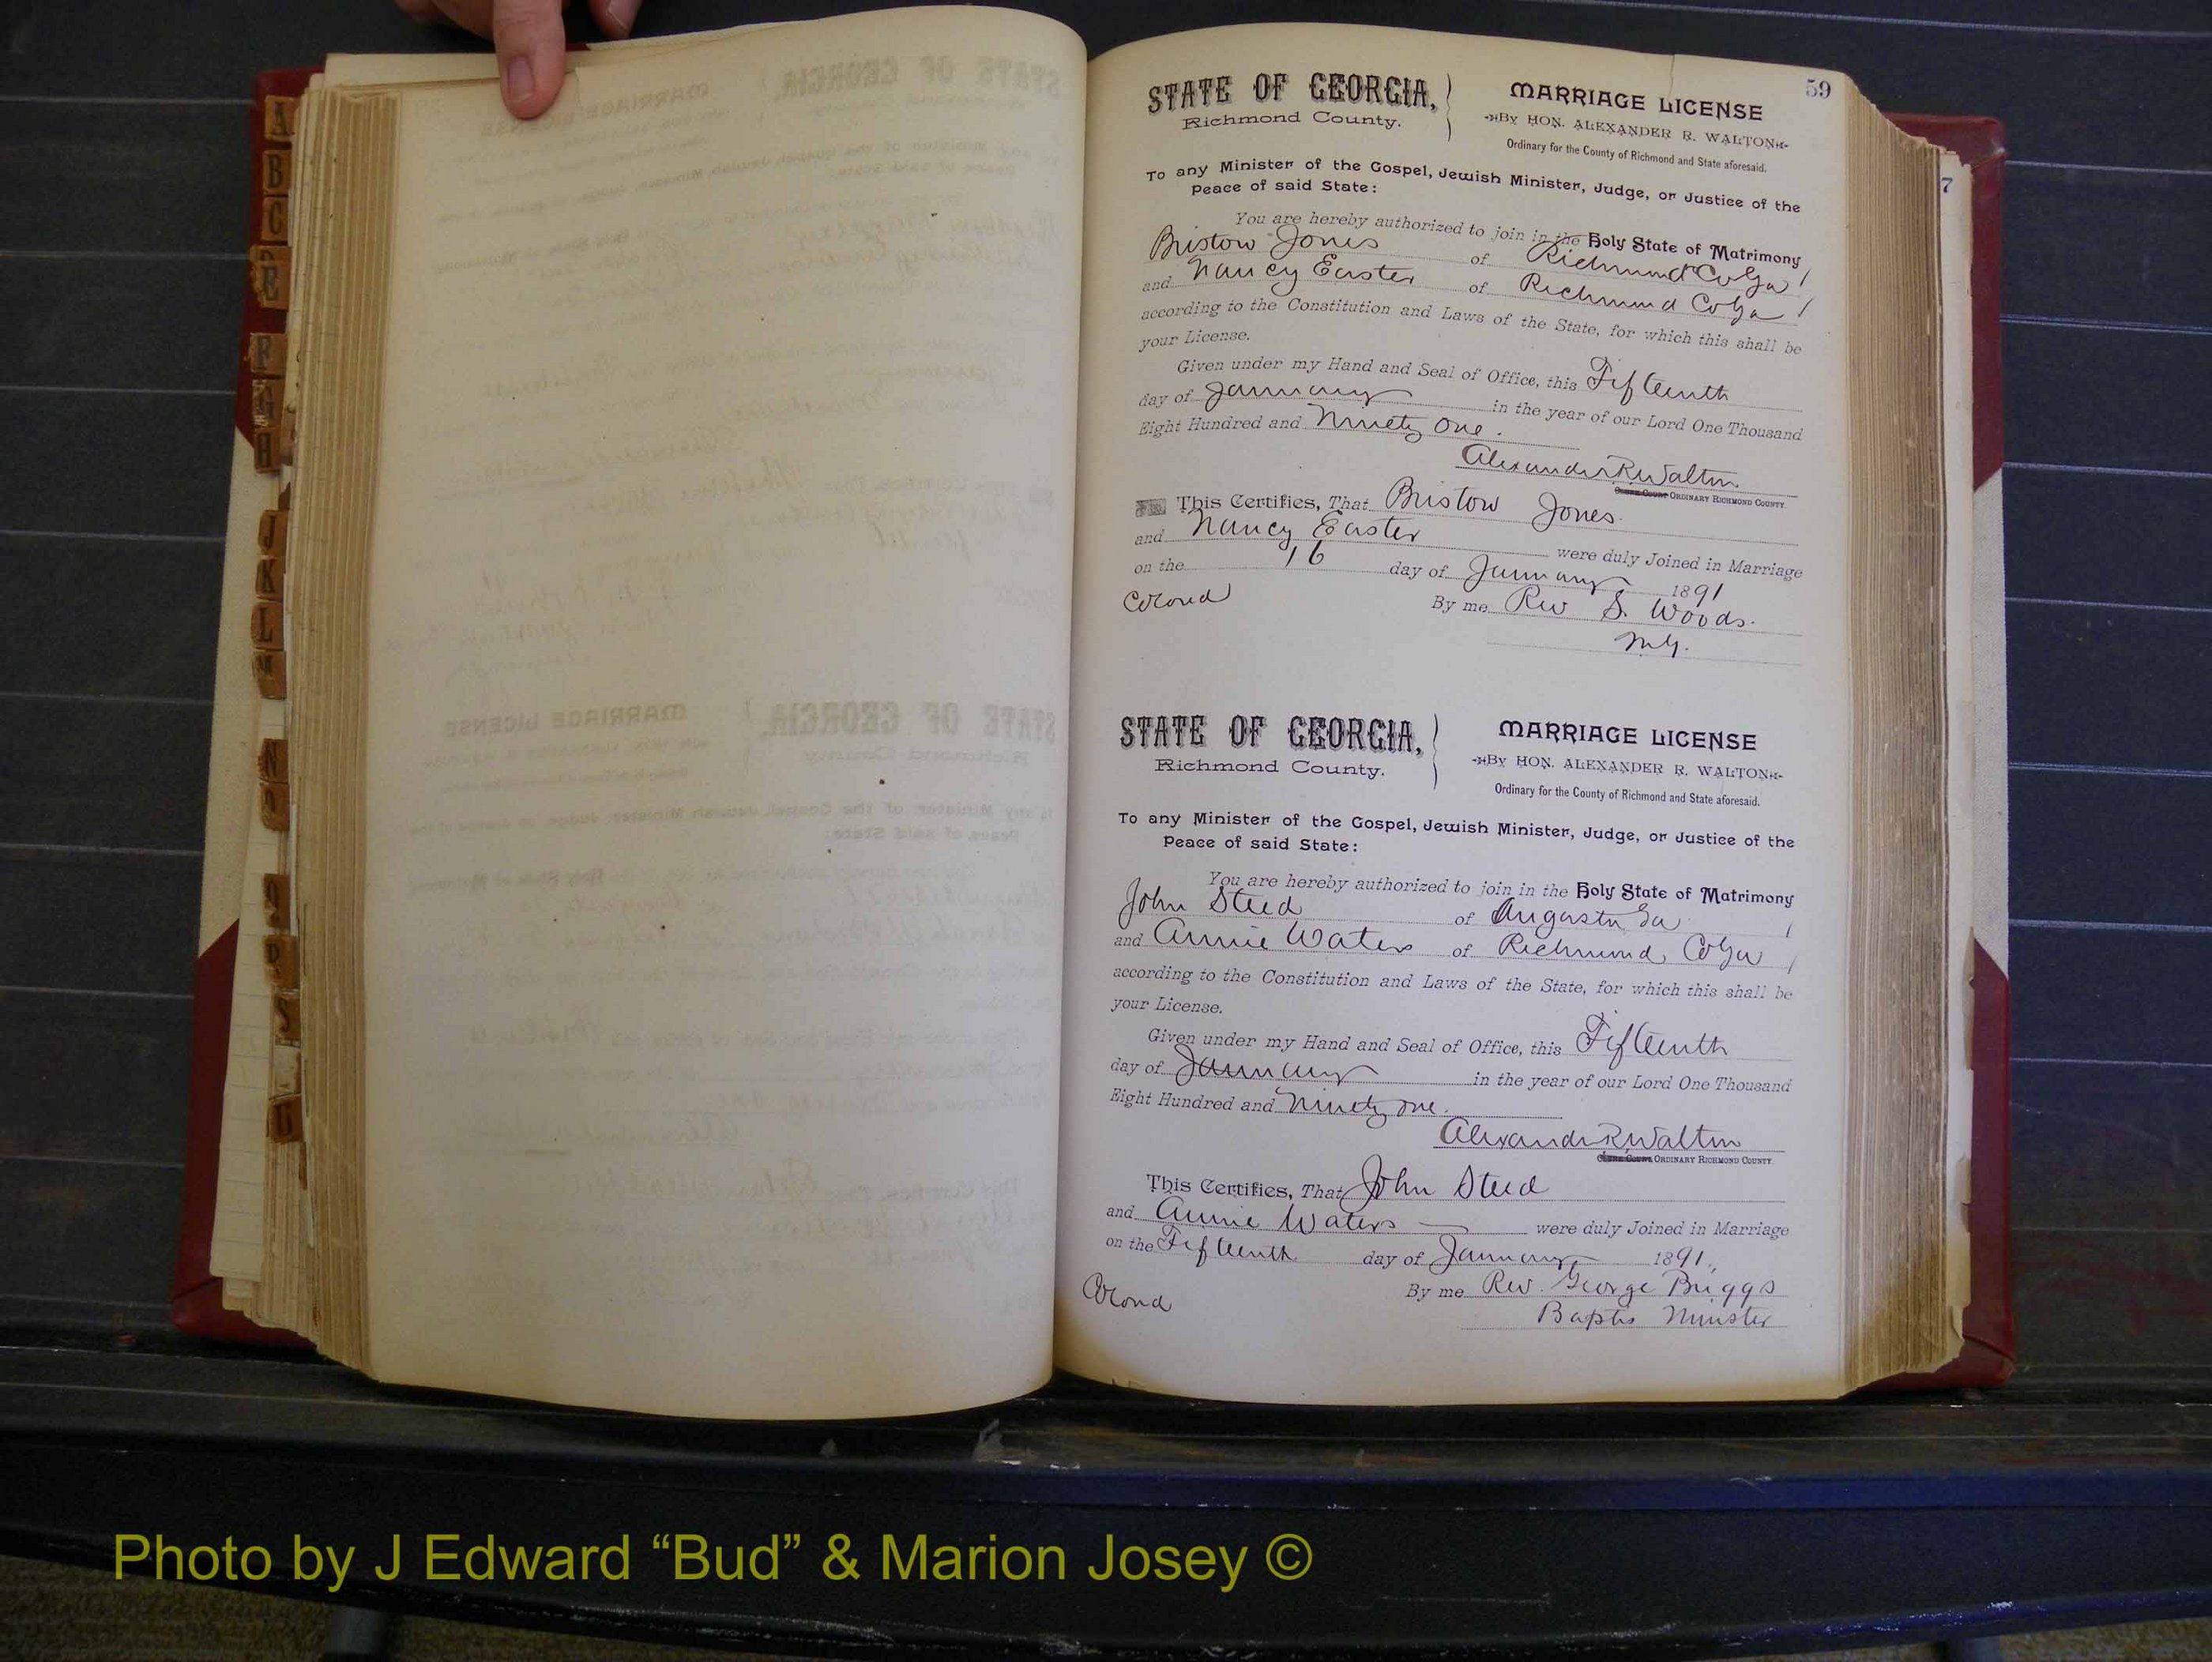 A
B
C
E
F
G
H
J
K
L
M
N
O
P
R
S
U
59
7
STATE OF GEORGIA,
Richmond County.
MARRIAGE LICENSE
By HON. ALEXANDER R. WALTON
Ordinary for the County of Richmond and State aforesaid.
To any Minister of the Gospel, Jewish Minister, Judge, or Justice of the
Peace of said State:
You are hereby authorized to join in the Holy State of Matrimony
Bristow Jones of Richmond Co Ga
and Nancy Easter of Richmond Co Ga
according to the Constitution and Laws of the State, for which this shall be
your License.
Given under my Hand and Seal of Office, this Fifteenth
day of January in the year of our Lord One Thousand
Eight Hundred and Ninety One.
Alexander R Walton
ORDINARY RICHMOND COUNTY
This Certifies, That Bristow Jones
and Nancy Easter were duly Joined in Marriage
on the 16 day of January 1891
Colord By me Rev S. Woods.
M.G.
STATE OF GEORGIA,
Richmond County.
MARRIAGE LICENSE
By HON. ALEXANDER R. WALTON
Ordinary for the County of Richmond and State aforesaid.
To any Minister of the Gospel, Jewish Minister, Judge, or Justice of the
Peace of said State:
You are hereby authorized to join in the Holy State of Matrimony
John Steed of Augusta Ga
and Annie Waters of Richmond Co Ga
according to the Constitution and Laws of the State, for which this shall be
your License.
Given under my Hand and Seal of Office, this Fifteenth
day of January in the year of our Lord One Thousand
Eight Hundred and Ninety One.
Alexander R Walton
ORDINARY RICHMOND COUNTY
This Certifies, That John Steed
and Annie Waters were duly Joined in Marriage
on the Fifteenth day of January 1891.
Colord By me Rev. George Briggs
Baptis Minister
Photo by J Edward “Bud” & Marion Josey ©